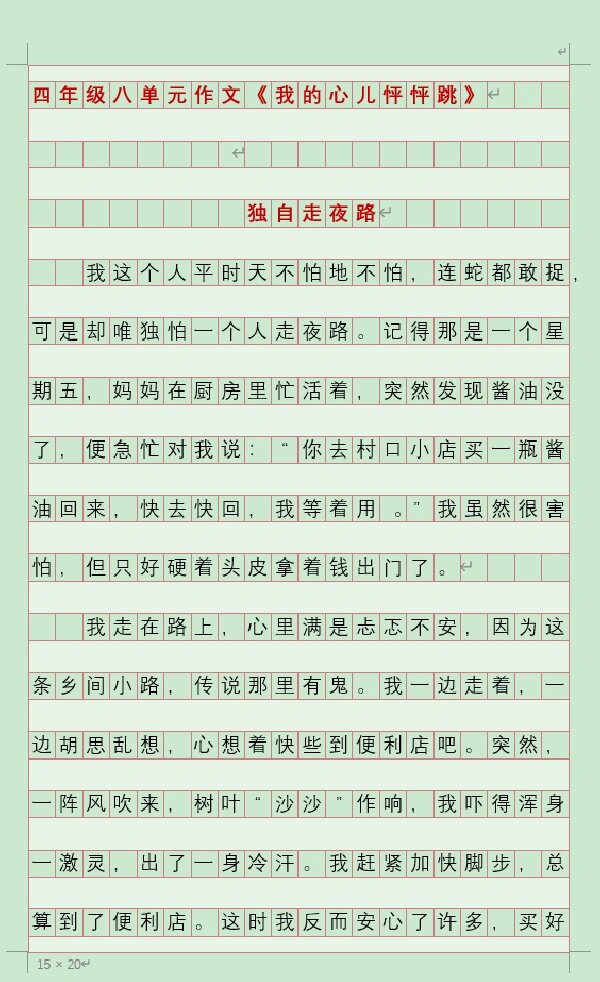 四年级八单元作文《我的心儿怦怦跳》
独自走夜路
我这个人平时天不怕地不怕，连蛇都敢捉，
可是却唯独怕一个人走夜路。记得那是一个星
期五，妈妈在厨房里忙活着，突然发现酱油没
了，便急忙对我说：“你去村口小店买一瓶酱
油回来，快去快回，我等着用。”我虽然很害
怕，但只好硬着头皮拿着钱出门了。
我走在路上，心里满是忐忑不安，因为这
条乡间小路，传说那里有鬼。我一边走着，一
边胡思乱想，心想着快些到便利店吧。突然，
一阵风吹来，树叶“沙沙”作响，我吓得浑身
一激灵，出了一身冷汗。我赶紧加快脚步，总
算到了便利店。这时我反而安心了许多，买好
15 × 20